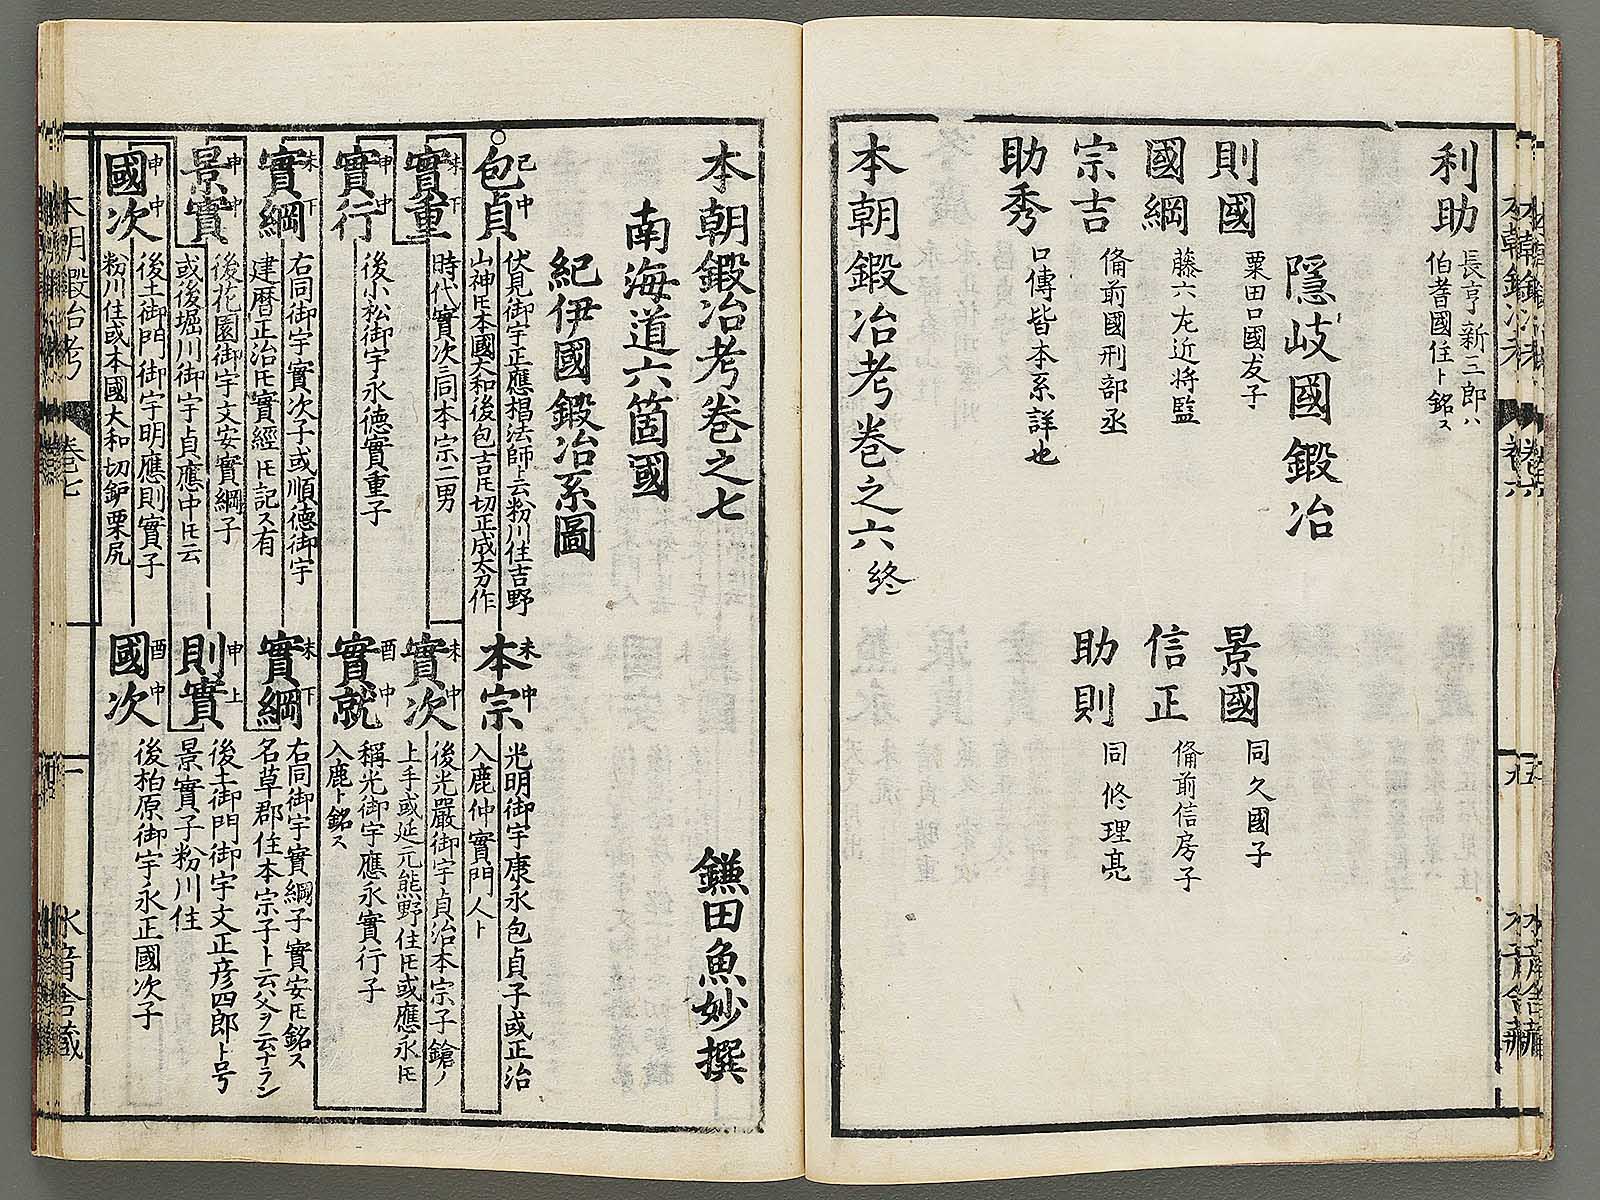 利助
長亨新三郎ハ
伯耆國住ト銘ス
隱岐國鍛冶
則國
粟田口國友子
景國
同久國子
國綱
藤六左近将監
信正
俻前信房子
宗吉
俻前國刑部丞
助則
同修理亮
助秀
口傳皆本系詳也
本朝鍛冶考巻之六終
本朝鍛冶考巻之七
鎌田魚妙撰
南海道六箇國
紀伊國鍛冶系圖
包貞
已中
伏見御宇正應椙法師ト云粉川住吉野
山神𪜈本國大和後包吉𪜈切正成太刀作
本宗
末中
光明御宇康永包貞子或正治
入鹿仲實門人ト
實重
末下
時代實次ニ同本宗二男
實次
末中
後光嚴御宇貞治本宗子鎗ノ
上手或延元熊野住𪜈或應永𪜈
實行
申中
後小松御宇永德實重子
實就
酉中
稱光御宇應永實行子
入鹿ト銘ス
實綱
末下
右同御宇實次子或順德御宇
建暦正治𪜈實經𪜈記ス有
實綱
末下
右同御宇實綱子實安𪜈銘ス
名草郡住本宗子ト云父ヲ云ナラン
景實
申中
後花園御宇文安實綱子
或後堀川御宇貞應中𪜈云
則實
申上
後土御門御宇文正彦四郎ト号
景實子粉川住
國次
申中
後土御門御宇明應則實子
粉川住或本國大和切鈩栗尻
國次
酉中
後柏原御宇永正國次子
本朝鍛冶考
巻七
一
水音舎藏